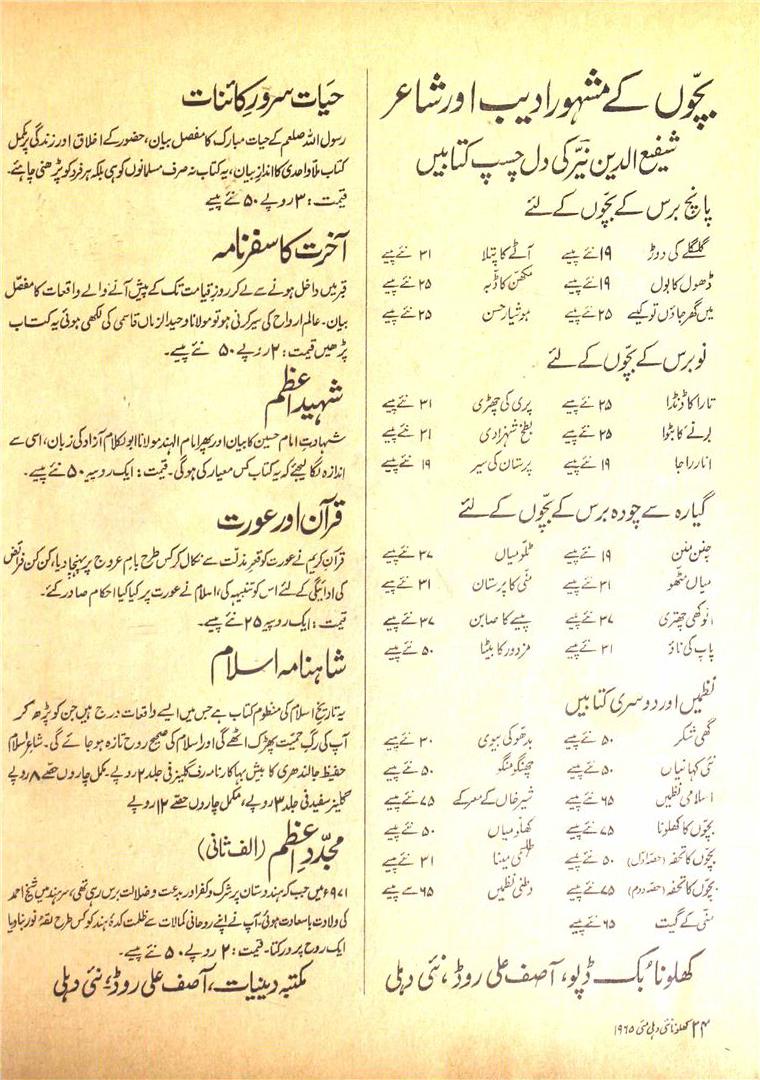 بچّوں کے مشہور ادیب اور شاعر
شفیع الدین نیّر کی دل چسپ کتابیں
پانچ برس کے بچّوں کے لئے
گلگلے کی دوڑ ۱۹ نئے پیسے آٹے کا پتلا ۳۱ نئے پیسے
ڈھول کا بول ۱۹ نئے پیسے مکھن کا ڈبہ ۲۵ نئے پیسے
میں گھر جاؤں تو کیسے ۲۵ نئے پیسے ہوشیار حسن ۲۵ نئے پیسے
نو برس کے بچّوں کے لئے
تارا کا ڈنڈا ۲۵ نئے پیسے پری کی چھڑی ۳۱ نئے پیسے
بونے کا بٹوا ۲۵ نئے پیسے بطخ شہزادی ۳۱ نئے پیسے
انار راجا ۱۹ نئے پیسے پرستان کی سیر ۱۹ نئے پیسے
گیارہ سے چودہ برس کے بچّوں کے لئے
چنن منن ۱۹ نئے پیسے للّو میاں ۳۷ نئے پیسے
میاں مٹھو ۳۱ نئے پیسے منّی کا پرستان ۳۱ نئے پیسے
انوکھی چھتری ۳۷ نئے پیسے پیسے کا صابن ۳۷ نئے پیسے
پاپ کی ناؤ ۳۱ نئے پیسے مزدور کا بیٹا ۵۰ نئے پیسے
نظمیں اور دوسری کتابیں
گھی شکر ۵۰ نئے پیسے بدھو کی بیوی ۳۰ نئے پیسے
نئی کہانیاں ۵۰ نئے پیسے چھنگو منگو ۵۰ نئے پیسے
اسلامی نظمیں ۶۵ نئے پیسے شیر خاں کے معرکے ۷۵ نئے پیسے
بچّوں کا کھلونا ۷۵ نئے پیسے کھلّو میاں ۵۰ نئے پیسے
بچّوں کا تحفہ (حصّہ اوّل) ۵۰ نئے پیسے طلسمی مینا ۳۱ نئے پیسے
بچّوں کا تحفہ (حصّہ دوم) ۷۵ نئے پیسے وطنی نظمیں ۶۵ نئے پیسے
منّی کے گیت ۶۵ نئے پیسے
کھلونا بُک ڈپو، آصف علی روڈ، نئی دہلی
۲۴ کھلونا نئی دہلی مئی ۱۹۶۵
حیَات سرورِ کائنات
رسول اللہ صلعم کے حیات مبارک کا مفصل بیان، حضور کے اخلاق اور زندگی پر مکمل
کتاب ملّا واحدی کا اندازِ بیان، یہ کتاب نہ صرف مسلمانوں کو ہی بلکہ ہر فرد کو پڑھنی چاہئے۔
قیمت: ۳ روپے ۵۰ نئے پیسے
آخرت کا سفر نامہ
قبر میں داخل ہونے سے لے کر روزِ قیامت تک کے پیش آنے والے واقعات کا مفصّل
بیان۔ عالم ارواح کی سیر کرنی ہو تو مولانا وحید الزماں قاسمی کی لکھی ہوئی یہ کتاب
پڑھیں قیمت: ۲ روپے ۵۰ نئے پیسے۔
شہیدِ اعظم
شہادتِ امام حسین کا بیان اور پھر امام الہند مولانا ابوالکلام آزاد کی زبان، اسی سے
اندازہ لگا لیجئے کہ یہ کتاب کس معیار کی ہو گی۔ قیمت: ایک روپیہ ۵۰ نئے پیسے۔
قرآن اور عورت
قرآن کریم نے عورت کو قعرِ مذلّت سے نکال کر کس طرح بامِ عروج پر پہنچا دیا، کن کن فرائض
کی ادائیگی کے لئے اس کو تنبیہ کی، اسلام نے عورت پر کیا کیا احکام صادر کئے۔
قیمت: ایک روپیہ ۲۵ نئے پیسے۔
شاہنامہ اسلام
یہ تاریخِ اسلام کی منظوم کتاب ہے جس میں ایسے واقعات درج ہیں جن کو پڑھ کر
آپ کی رگِ حمیّت پھڑک اٹھے گی اور اسلام کی صحیح روح تازہ ہو جائے گی۔ شاعرِ اسلام
حفیظ جالندھری کا بیش بہا کارنامہ رف گلیزنی جلد ۲ روپے۔ مکمل چاروں حصّے ۸ روپے
گلیز سفیدنی جلد ۳ روپے، مکمل چاروں حصّے ۱۲ روپے
مجدّدِ اعظم (الف ثانی)
۹۷۱ء میں جب کہ ہندوستان پر شرک و کفر اور بدعت و ضلالت برس رہی تھی، سرہند میں شیخ احمد
کی ولادت باسعادت ہوئی، آپ نے اپنے روحانی کمالات سے ظلمت کدۂ ہند کو کس طرح بقعۂ نور بنا دیا
ایک روح پرور کتاب۔ قیمت: ۲ روپے ۵۰ نئے پیسے۔
مکتبہ دینیات، آصف علی روڈ، نئی دہلی